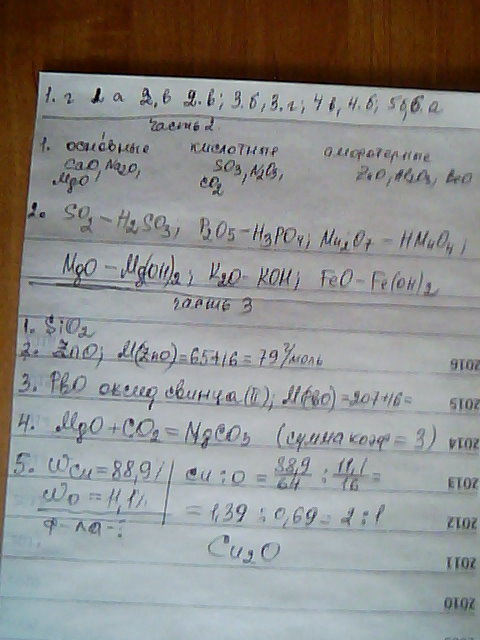 1. г 1 а 2. в 2. в; 3. б, 3. г; 4 в, 4. б; 5 б, 6. а
часть 2
1. оснóвные кислотные амфотерные
CaO, Na2O, SO3, N2O3, ZnO, Al2O3, BeO
MgO CO2
2. SO2 – H2SO3; P2O5 – H3PO4; Mn2O7 – HMnO4;
MgO – Mg(OH)2; K2O – KOH; FeO – Fe(OH)2
часть 3
1. SiO2
2. ZnO; M(ZnO) = 65+16 = 79 г/моль
3. PbO оксид свинца (II); M(PbO) = 207+16=
4. MgO + CO2 = MgCO3 (сумма коэф = 3)
5. WCu = 88,9% Cu : O = 88,9/64 : 11,1/16 =
WO = 11,1% = 1,39 : 0,69 = 2 : 1
ф-ла - ?
Cu2O
2016
2015
2014
2013
2012
2011
2010